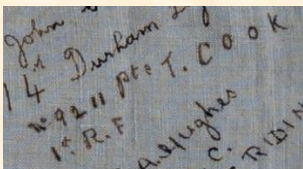 John
14 Durham
No 9211 Pte T. COOK
1st R. F
A. Hughes
C.
RIDIN